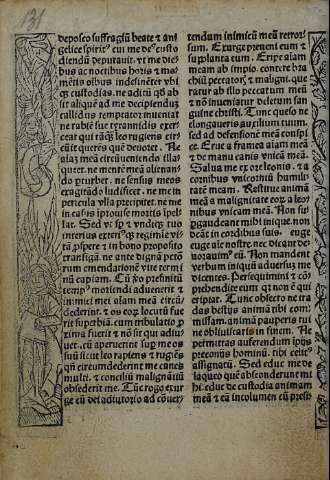 131
deposco suffragiũ beate ⁊ ani
gelice spirit⁹ cui me de⁹ custo
diendũ deputauit, vt me die
bus ac noctibus horis ⁊ mo
mẽtis oĩbus indesinẽter vbi
q̃ custodias. ne aditũ q̃õ ab
sit aliquẽ ad me decipiendũ
callidus temptator inueniat
ne rabie sue tyrannidis exer
ceat qui tãq̃ leo rugiens cir
cũit querẽs quẽ deuoret. Ne
alaz meã circũueniendo illa
queet. ne mentẽ meã alienan
do pturbet. ne sensus meos
exagitãdo ludificet. ne me in
pericula vlla precipitet. ne me
in casus iprouise mortis ipel
lat. Sed vt sp̃ ⁊ vndiq̃ tuo
interius exteri⁹q̃ regimie vi
tã pspere ⁊ in bono proposito
transigã. ne ante dignã peto
rum emendationẽ vite termi
nũ capiam. Et si p̃o presiniti
temp⁹ moriendi aduenerit ⁊
inimici mei alam meã circũ
dederint. ⁊ os eoz locutũ fue
rit superbiã. cum tribulatio p
xima fuerit ⁊ nõ sit qui adiu
uet. cũ aperuerint sup me os
suũ sicut leo rapiens ⁊ rugiẽs
q̃n circumdederint me canes
multi. ⁊ conciliũ malignãtiũ
obsederit me. Tũc rogo exur
ge tu in adiutorio ad cõuer
tendum inimicũ meũ retror
sum. Exurge preueni eum ⁊
supplanta eum. Eripe alam
meam ab impio. contere bra
chiũ peccatoris ⁊ maligni. que
ratur ab illo peccatum meũ
⁊ nõ inueniatur deletum san
guine christi. Tunc queso ne
elongaueris auxilium tuum.
sed ad defensionẽ meã conspi
ce. Erue a framea alam meã
⁊ de manu canis vnicã meã.
Salua me ex ore leonis. ⁊ a
cornibus vnicorniũ humili
tatẽ meam. Restitue animã
meã a malignitate eoz. a leo
nibus vnicam meã. Non su
pgaudeant mihi inique. non
dicãt in cordibus suis. euge
euge aĩe nostre. nec dicant de
uorauim⁹ eũ. Non mandent
verbum iniquũ aduersuz me
dicentes. Persequimini ⁊ cõ
prehendite eum q̃ nõ ẽ qui
eripiat. Tunc obsecro ne tra
das bestijs animã tibi com
missam. animã pauperis tui
ne obliuiscaris in finem. Ne
permittas auferendam ipijs
preconijs hominũ. tibi celit⁹
assignatũ. Sed educ me de
laqueo quẽ absconderunt mi
hi. educ de custodia animam
meã ⁊ eã incolumen cũ presti